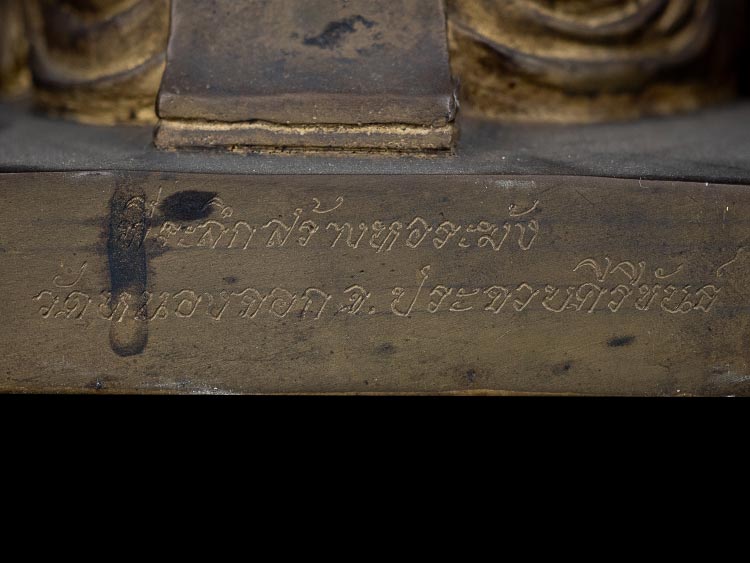 ที่ระลึกสร้างหอระฆัง
วัดหนองจอก จ.ประจวบคีรีขันธ์